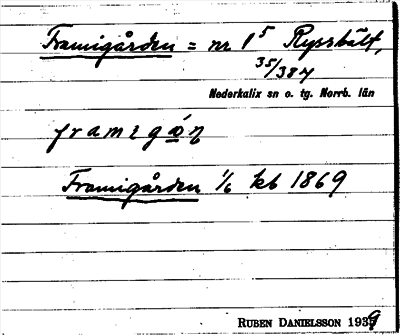 Framigården = nr 1⁵ Ryssbält,
35/387
Nederkalix sn o. tg. Norrb. län
framigǻṇ
Framigården 1/6 kb 1869
RUBEN DANIELSSON 1939